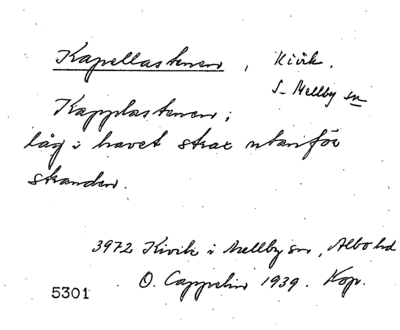 Kapellastenen, Kivik.
S. Mellby sn
Kapplastenen;
låg i havet strax utanför
stranden.
3972 Kivik i Mellby sn, Albo hd
O. Cappelin 1939. Kop.
5301